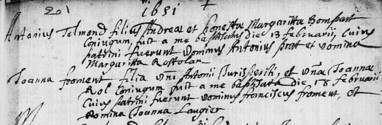 21 1651
Antonius Telmond filius Andreae et honestae Margaritta Bompart
Coniugum fuit a me baptisatus die 13 februarii, Cuius
patrini fuerunt dominus Antonius prat et domina
Margaritta Rostolan
Joanna froment filia Antonii Jurisperiti, et Joanna
Rol Coniugum fuit a me baptisata die, 13 februarii
Cuius patrini fuerunt dominus franciscus froment, et
domina Joanna Laugier